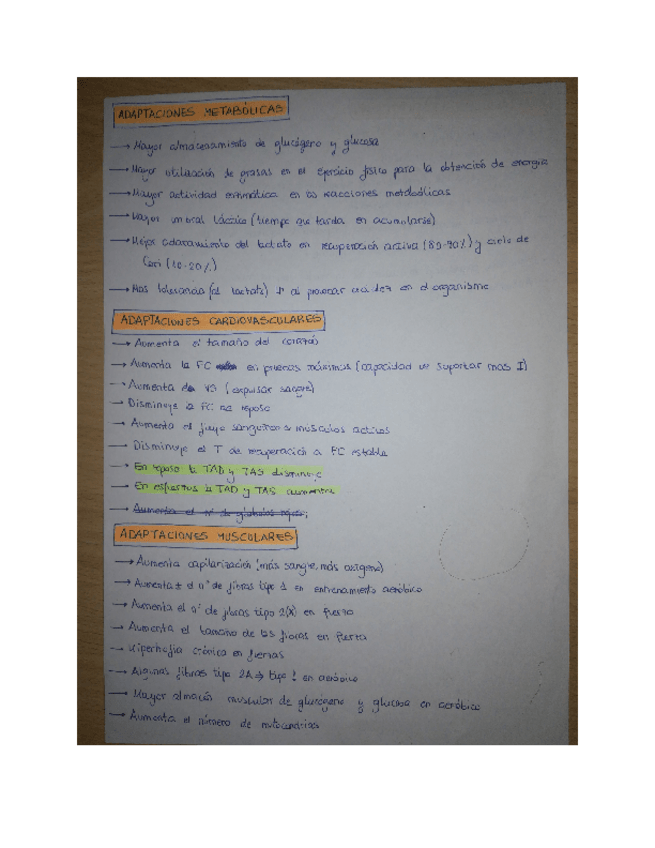 ADAPTACIONES METABÓLICAS
→ Mayor almacenamiento de glucógeno y glucosa
→ Mayor utilización de grasas en el ejercicio físico para la obtención de energía
→ Mayor actividad enzimática en las reacciones metabólicas
→ Mayor umbral láctico (tiempo que tarda en acumularse)
→ Mejor aclaramiento del lactato en recuperación activa (80-90%) y ciclo de
Cori (10-20%)
→ Mas tolerancia (al lactato) al provocar acidez en el organismo
ADAPTACIONES CARDIOVASCULARES
→ Aumenta el tamaño del corazón
→ Aumenta la FC en pruebas máximas (capacidad de soportar mas I)
→ Aumenta VS (expulsar sangre)
→ Disminuye la FC de reposo
→ Aumenta el flujo sanguíneo a musculos activos
→ Disminuye el T de recuperación a FC estable
→ En reposo la TAD y TAS disminuye
→ En esfuerzos la TAD y TAS aumenta
→ Aumenta el nº de glóbulos rojos
ADAPTACIONES MUSCULARES
→ Aumenta capilarización (más sangre, más oxígeno)
→ Aumenta ± el nº de fibras tipo 1 en entrenamiento aeróbico
→ Aumenta el nº de fibras tipo 2(X) en fuerza
→ Aumenta el tamaño de las fibras en fuerza
→ Hipertrofia crónica en fuerza
→ Algunas fibras tipo 2A → tipo 1 en aeróbico
→ Mayor almacén muscular de glucógeno y glucosa en aeróbico
→ Aumenta el número de mitocondrias